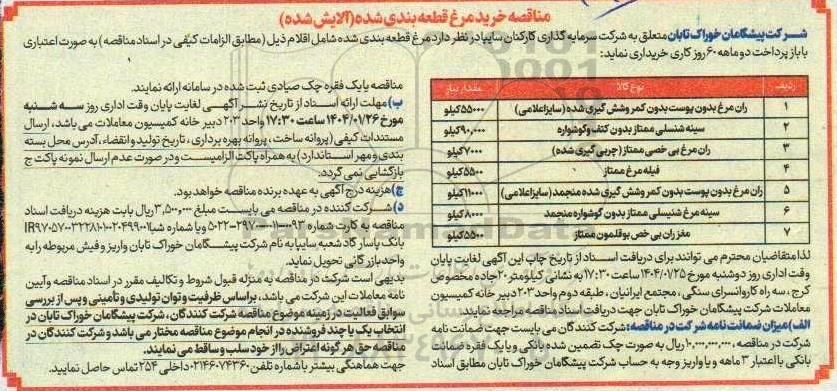 مناقصه خرید مرغ قطعه بندی شده (آلایش شده)
شرکت پیشگامان خوراک تابان متعلق به شرکت سرمایه گذاری کارکنان سایپا در نظر دارد مرغ قطعه بندی شده شامل اقلام ذیل (مطابق الزامات کیفی در اسناد مناقصه) به صورت اعتباری
با باز پرداخت دو ماهه ۶۰ روز کاری خریداری نماید:
ردیف نوع کالا مقدار نیاز
۱ ران مرغ بدون پوست بدون کمر وش گیری شده (سایز اعلامی) ۵۵۰۰۰کیلو
۲ سینه شنسلی ممتاز بدون کتف و گوشواره ۹۰,۰۰۰کیلو
۳ ران مرغ بی خصی ممتاز (چربی گیری شده) ۷۰۰۰کیلو
۴ فیله مرغ ممتاز ۵۵۰۰کیلو
۵ ران مرغ بدون پوست بدون کمر وش گیری شده منجمد (سایز اعلامی) ۱۱۰۰۰کیلو
۶ سینه مرغ شنیسلی ممتاز بدون گوشواره منجمد ۸۰۰۰کیلو
۷ مغز ران بی خص بوقلمون ممتاز ۵۵۰۰کیلو
لذا متقاضیان محترم می توانند برای دریافت اسناد از تاریخ چاپ این آگهی لغایت پایان
وقت اداری روز دوشنبه مورخ ۱۴۰۴/۰۱/۲۵ ساعت ۱۷:۳۰ به نشانی کیلومتر ۲۰ جاده مخصوص
کرج، سه راه کاروانسرای سنگی، مجتمع ایرانیان، طبقه دوم واحد ۲۰۳ دبیر خانه کمیسیون
معاملات شرکت پیشگامان خوراک تابان جهت دریافت اسناد مناقصه مراجعه نمایند.
الف) میزان ضمانت نامه شرکت در مناقصه: شرکت کنندگان می بایست جهت ضمانت نامه
شرکت در مناقصه، ۱۰,۰۰۰,۰۰۰,۰۰۰ ریال به صورت چک تضمین شده بانکی و یا یک فقره ضمانت
بانکی با اعتبار ۳ ماهه و یا واریز وجه به حساب شرکت پیشگامان خوراک تابان مطابق اسناد
مناقصه یا یک فقره چک صیادی ثبت شده در سامانه ارائه نمایند.
ب) مهلت ارائه اسناد از تاریخ نشر آگهی لغایت پایان وقت اداری روز سه شنبه
مورخ ۱۴۰۴/۰۱/۲۶ ساعت ۱۷:۳۰ واحد ۲۰۳ دبیر خانه کمیسیون معاملات می باشد، ارسال
مستندات کیفی (پروانه ساخت، پروانه بهره برداری، تاریخ تولید و انقضاء، آدرس محل بسته
بندی و مهر استاندارد) به همراه پاکت الزامیست و در صورت عدم ارسال نمونه پاکت ج
بازگشایی نمی گردد.
ج) هزینه درج آگهی به عهده برنده مناقصه خواهد بود.
د) شرکت کننده در مناقصه می بایست مبلغ ۳,۵۰۰,۰۰۰ ریال بابت هزینه دریافت اسناد
مناقصه به کارت شماره و یا شماره شبا
بانک پاسارگاد شعبه سایپا به نام شرکت پیشگامان خوراک تابان واریز و فیش مربوطه را به
واحد بازرگانی تحویل نماید.
بدیهی است شرکت در مناقصه به منزله قبول شروط و تکالیف مقرر در اسناد مناقصه و آیین
نامه معاملات این شرکت می باشد، براساس ظرفیت و توان تولیدی و تأمینی و پس از بررسی
سوابق فعالیت در زمینه موضوع مناقصه شرکت کنندگان، شرکت پیشگامان خوراک تابان در
انتخاب یک یا چند فروشنده در انجام موضوع مناقصه مختار می باشد و شرکت کنندگان در
مناقصه حق هر گونه اعتراض را از خود سلب و ساقط می نمایند.
جهت هماهنگی بیشتر با شماره تلفن ۰۲۱۴۶۰۷۴۳۶۰ داخلی ۲۵۴ تماس حاصل نمایید.